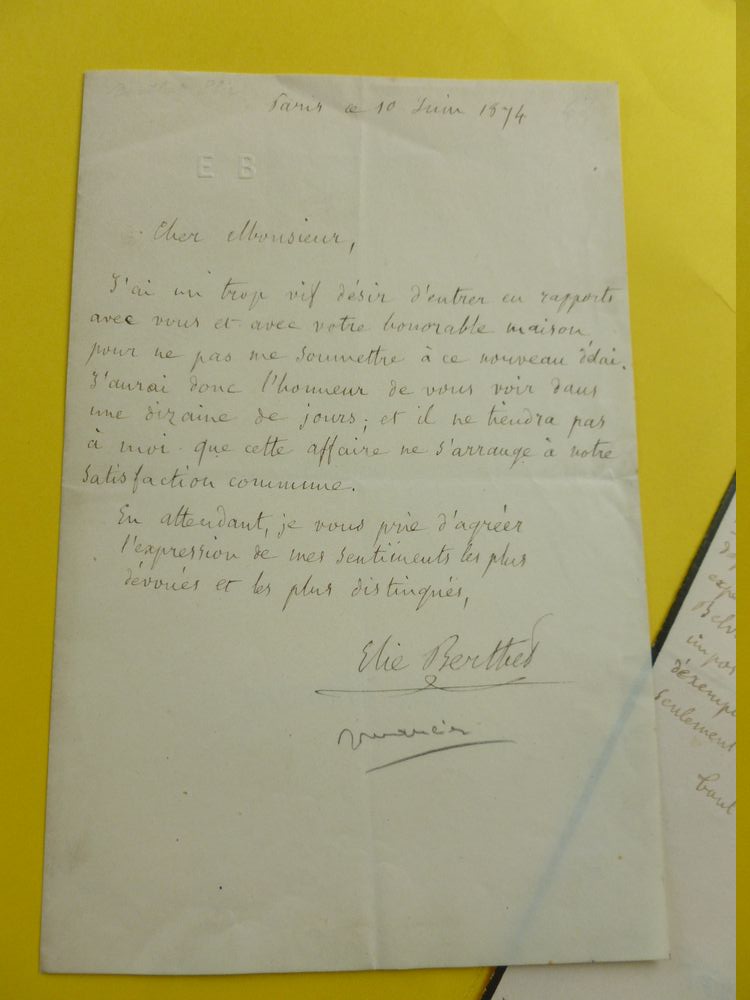 Paris ce 10 Juin 1874
E B
Cher Monsieur,
J'ai un trop vif désir d'entrer en rapports
avec vous et avec votre honorable maison
pour ne pas me soumettre à ce nouveau délai.
J'aurai donc l'honneur de vous voir dans
une dizaine de jours; et il ne tiendra pas
à moi que cette affaire ne s'arrange à notre
satisfaction commune.
En attendant, je vous prie d'agréer
l'expression de mes sentiments les plus
dévoués et les plus distingués,
Elie Berthet
seulement